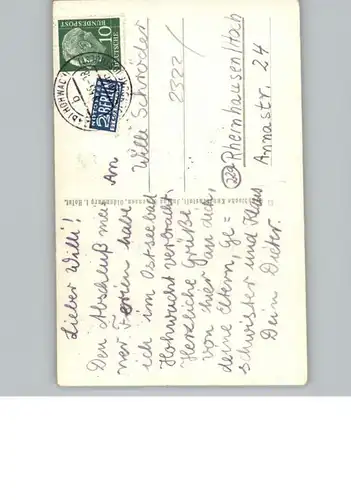 Lieber Willi!
Den Abschluß mei
ner Ferien habe
ich im Ostseebad
Hohwacht verbracht.
Herzliche Grüße
von hier an dich,
deine Eltern, Ge=
schwister und Klaus
Dein Dieter
An
Willi Schröder
2322/
22a Rheinhausen/Ndrh
Annastr. 24
10
DEUTSCHE
BUNDESPOST
HOHWACHT
b
2
NOTOPFER
BERLIN
Oldenburg i. Holst.